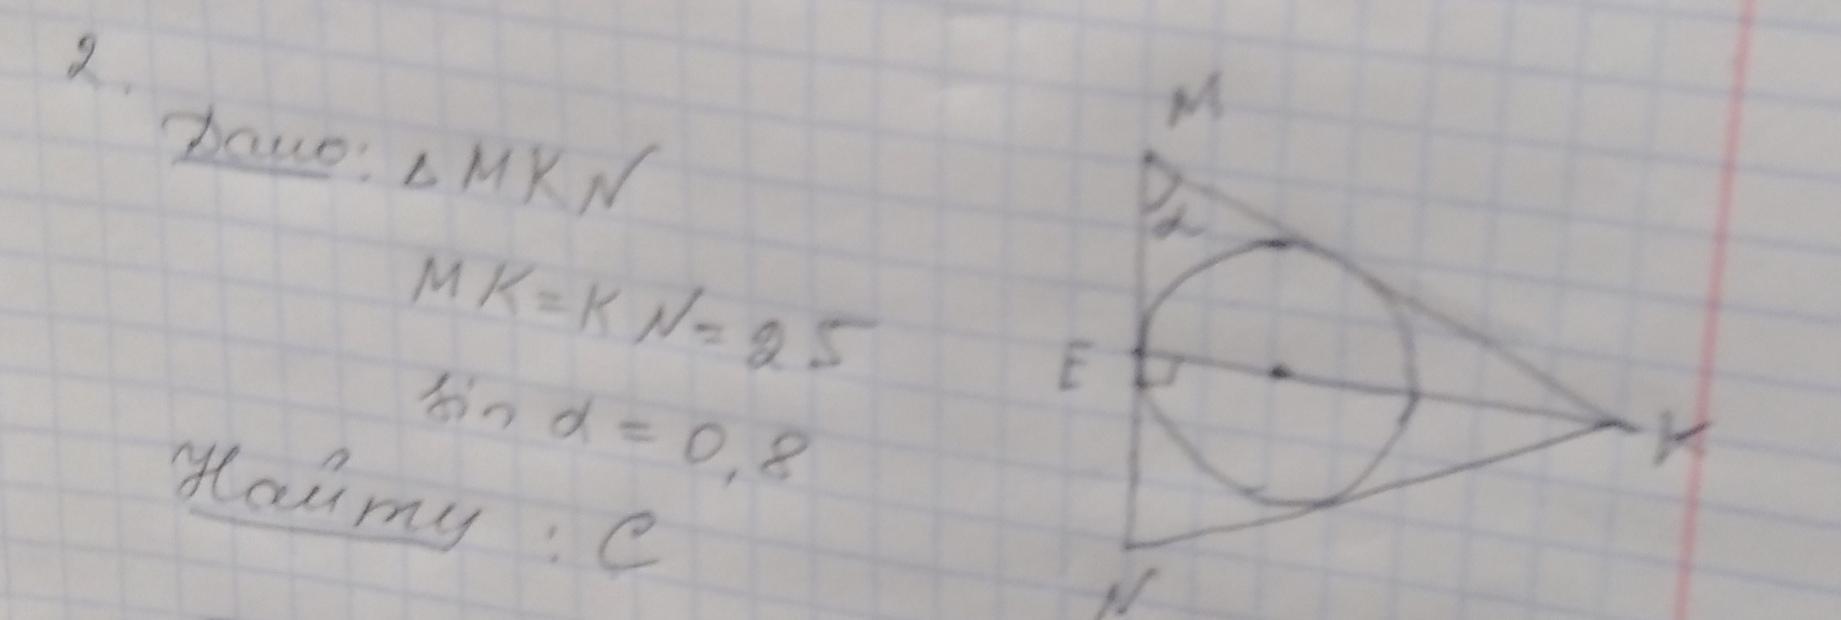 2.
Дано: △MKN
MK=KN=25
sin α = 0,8
Найти: C
M
α
E
K
N